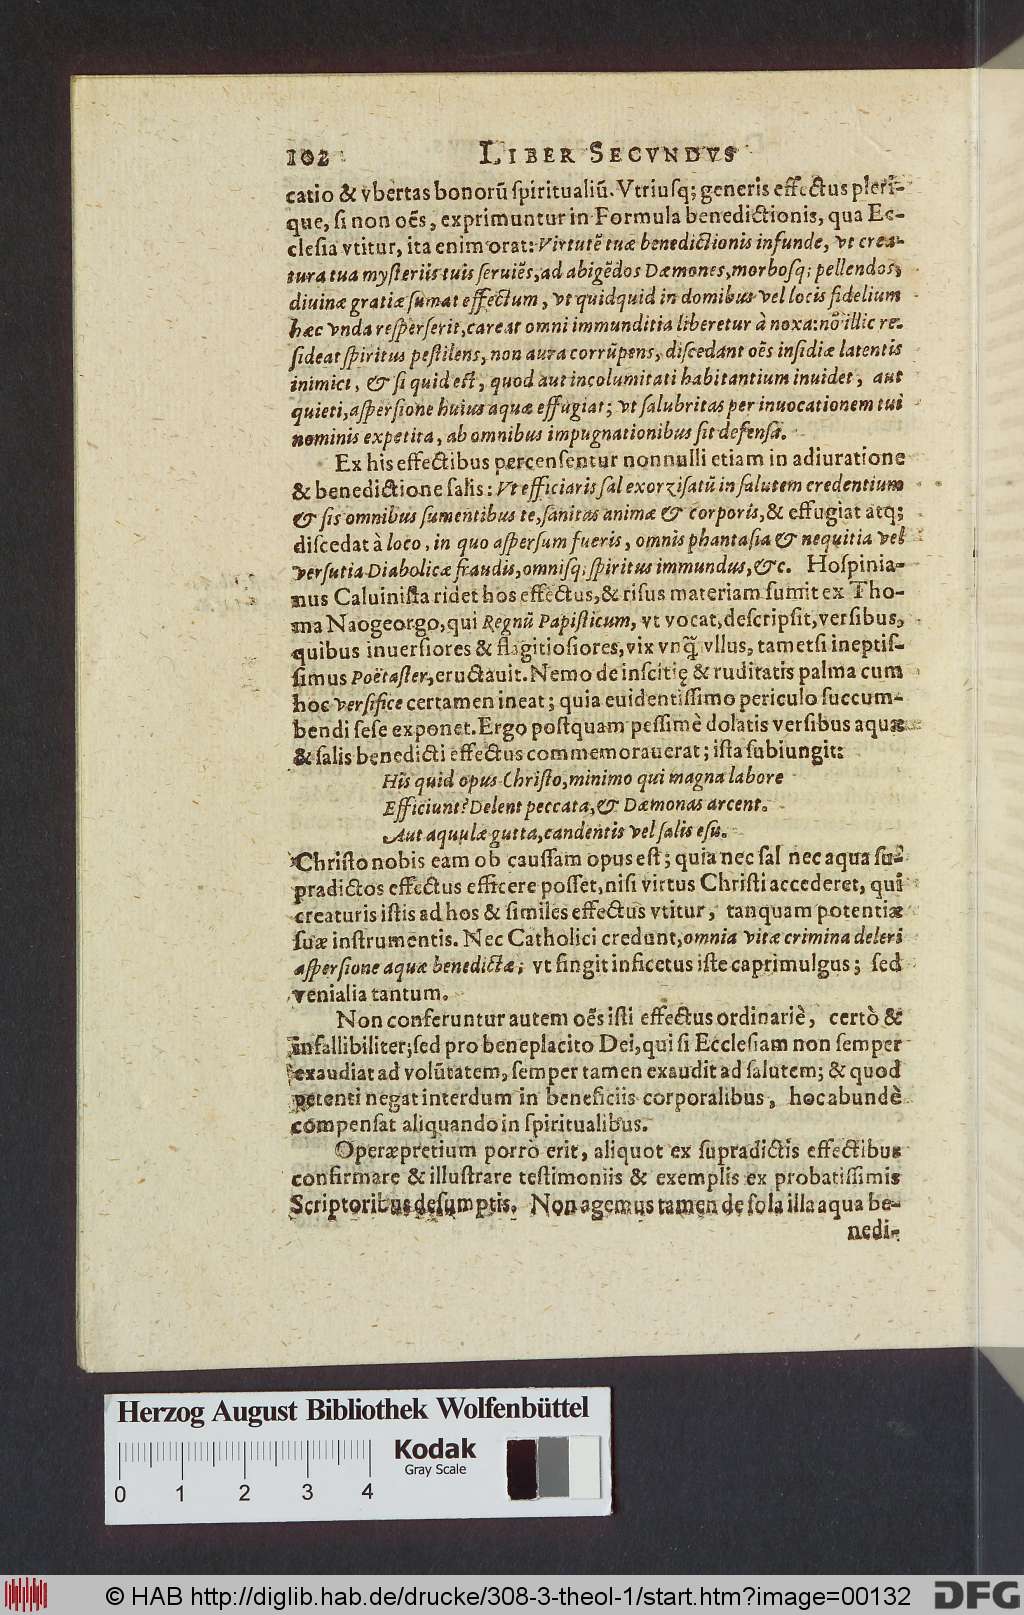 102 LIBER SECVNDVS
catio & vbertas bonorū ſpiritualiū. Vtriuſq; generis effectus pleri-
que, ſi non oēs, exprimuntur in Formula benedictionis, qua Ec-
cleſia vtitur, ita enim orat: Virtutē tuæ benedictionis infunde, vt crea-
tura tua myſteriis tuis ſeruiēs, ad abigēdos Dæmones, morboſq; pellendos,
diuinæ gratiæ ſumat effectum, vt quidquid in domibus vel locis fidelium
hæc vnda reſperſerit, careat omni immunditia liberetur à noxa: nō illic re-
ſideat ſpiritus peſtilens, non aura corrūpens, diſcedant oēs inſidiæ latentis
inimici, & ſi quid eſt, quod aut incolumitati habitantium inuidet, aut
quieti, aſperſione huius aquæ effugiat; vt ſalubritas per inuocationem tui
nominis expetita, ab omnibus impugnationibus ſit defenſa.
Ex his effectibus percenſentur nonnulli etiam in adiuratione
& benedictione ſalis: Vt efficiaris ſal exorziſatū in ſalutem credentium
& ſis omnibus ſumentibus te, ſanitas animæ & corporis, & effugiat atq;
diſcedat à loco, in quo aſperſum fueris, omnis phantaſia & nequitia vel
verſutia Diabolicæ fraudis, omniſq; ſpiritus immundus, &c. Hoſpinia-
nus Caluiniſta ridet hos effectus, & riſus materiam ſumit ex Tho-
ma Naogeorgo, qui Regnū Papiſticum, vt vocat, deſcripſit, verſibus,
quibus inuerſiores & flagitioſiores, vix vnq̃ vllus, tametſi ineptiſ-
ſimus Poëtaſter, eructauit. Nemo de inſcitię & ruditatis palma cum
hoc verſifice certamen ineat; quia euidentiſſimo periculo ſuccum-
bendi ſeſe exponet. Ergo poſtquam peſſimè dolatis verſibus aquæ
& ſalis benedicti effectus commemorauerat; iſta ſubiungit:
His quid opus Chriſto, minimo qui magna labore
Efficiunt? Delent peccata, & Dæmonas arcent.
Aut aquulæ gutta, candentis vel ſalis eſu.
Chriſto nobis eam ob cauſſam opus eſt; quia nec ſal nec aqua ſu-
pradictos effectus efficere poſſet, niſi virtus Chriſti accederet, qui
creaturis iſtis ad hos & ſimiles effectus vtitur, tanquam potentiæ
ſuæ inſtrumentis. Nec Catholici credunt, omnia vitæ crimina deleri
aſperſione aquæ benedictæ; vt fingit inficetus iſte caprimulgus; ſed
venialia tantum.
Non conferuntur autem oēs iſti effectus ordinariè, certò &
infallibiliter; ſed pro beneplacito Dei, qui ſi Eccleſiam non ſemper
exaudiat ad volūtatem, ſemper tamen exaudit ad ſalutem; & quod
petenti negat interdum in beneficiis corporalibus, hoc abundè
compenſat aliquando in ſpiritualibus.
Operæpretium porrò erit, aliquot ex ſupradictis effectibus
confirmare & illuſtrare teſtimoniis & exemplis ex probatiſſimis
Scriptoribus deſumptis. Non agemus tamen de ſola illa aqua be-
nedi-
Herzog August Bibliothek Wolfenbüttel
Kodak
Gray Scale
0 1 2 3 4
© HAB http://diglib.hab.de/drucke/308-3-theol-1/start.htm?image=00132
DFG